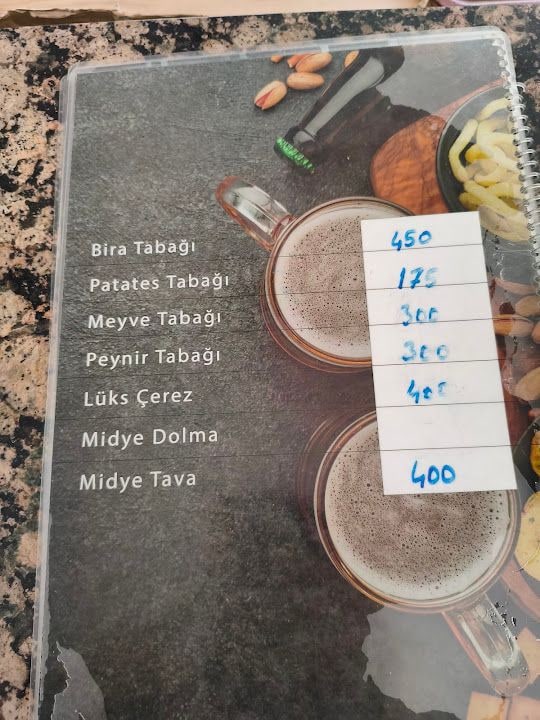 Bira Tabağı 450
Patates Tabağı 175
Meyve Tabağı 300
Peynir Tabağı 300
Lüks Çerez 400
Midye Dolma
Midye Tava 400